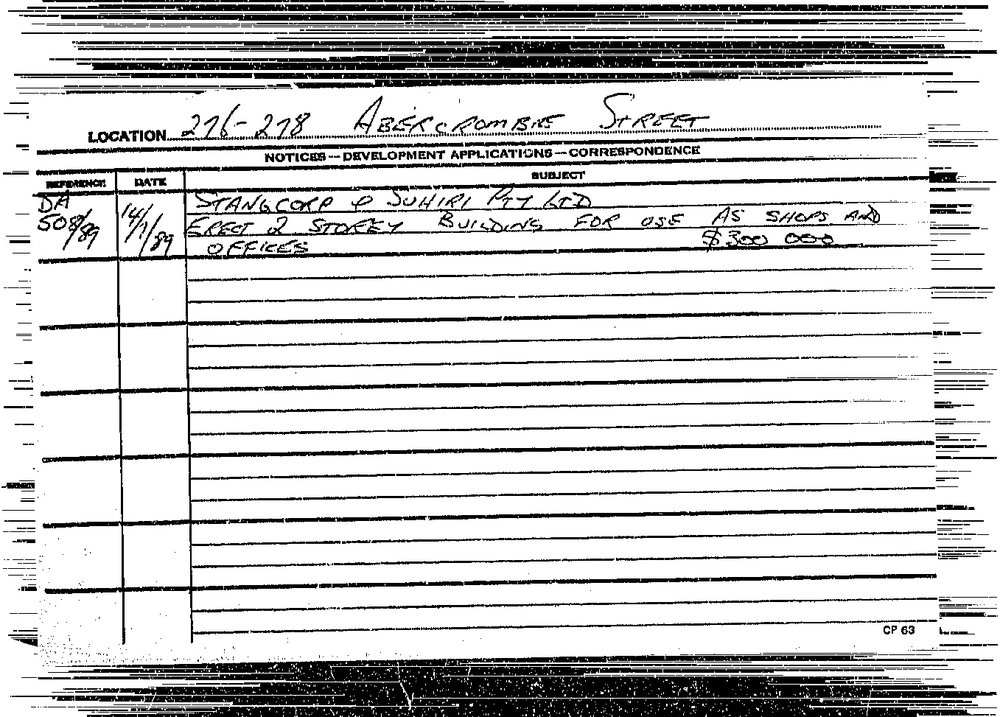 LOCATION 276-278 ABERCROMBIE STREET
NOTICES — DEVELOPMENT APPLICATIONS — CORRESPONDENCE
REFERENCE DATE SUBJECT
DA STANGCORP & SUHIRI PTY LTD
508/89 14/7/89 ERECT 2 STOREY BUILDING FOR USE AS SHOPS AND
OFFICES $300 000
CP 63